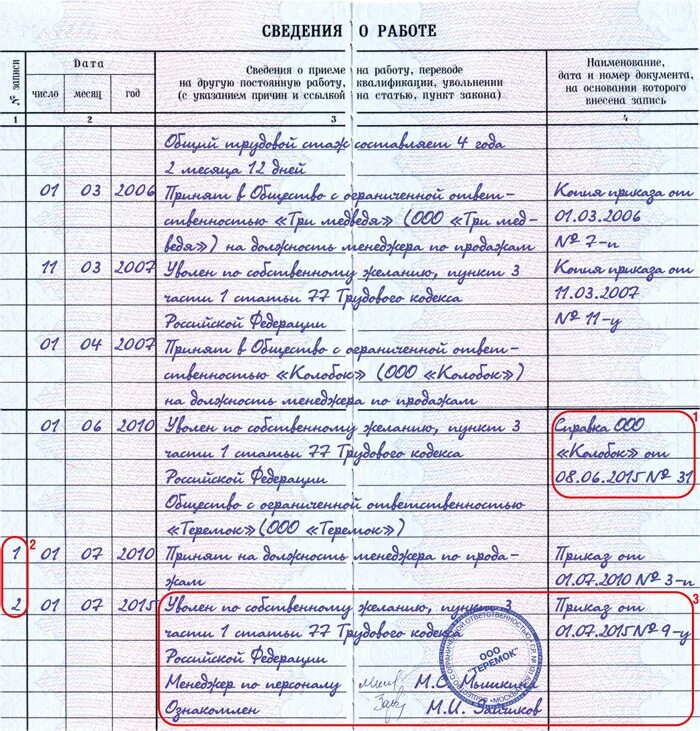 СВЕДЕНИЯ О РАБОТЕ
№ записи
Дата
Сведения о приеме на работу, переводе
на другую постоянную работу, квалификации, увольнении
(с указанием причин и ссылкой на статью, пункт закона)
Наименование,
дата и номер документа,
на основании которого
внесена запись
число месяц год
1 2 3 4
Общий трудовой стаж составляет 4 года
2 месяца 12 дней
01 03 2006 Принят в Общество с ограниченной ответ- Копия приказа от
ственностью «Три медведя» (ООО «Три мед- 01.03.2006
ведя») на должность менеджера по продажам № 7-п
11 03 2007 Уволен по собственному желанию, пункт 3 Копия приказа от
части 1 статьи 77 Трудового кодекса 11.03.2007
Российской Федерации № 11-у
01 04 2007 Принят в Общество с ограниченной ответ-
ственностью «Колобок» (ООО «Колобок»)
на должность менеджера по продажам
01 06 2010 Уволен по собственному желанию, пункт 3 Справка ООО 1
части 1 статьи 77 Трудового кодекса «Колобок» от
Российской Федерации 08.06.2015 № 31
Общество с ограниченной ответственностью
«Теремок» (ООО «Теремок»)
2
1 01 07 2010 Принят на должность менеджера по прода- Приказ от
жам 01.07.2010 № 3-п
2 01 07 2015 Уволен по собственному желанию, пункт 3 Приказ от 3
части 1 статьи 77 Трудового кодекса 01.07.2015 № 9-у
Российской Федерации
Менеджер по персоналу М.С. Мышкина
Ознакомлен М.И. Зайчиков
ООО
"ТЕРЕМОК"